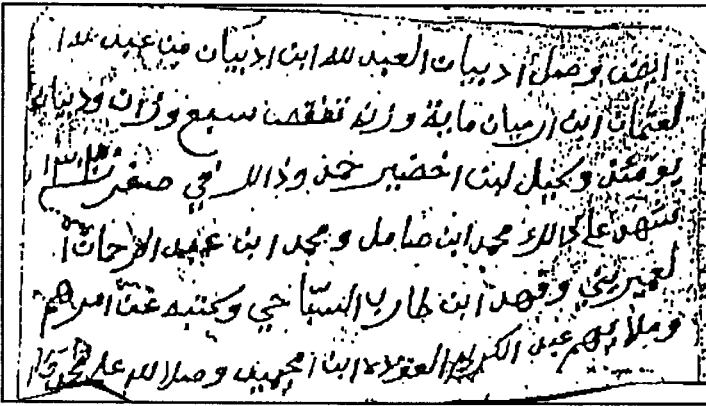 ايضن وصل ادبيان العبد لله ابن ادبيان من عبد لله
لعثمان ابن ارميان ماية وزنه تنقص سبع وزان ودبيان
يومئذن وكيل لبن اخضير خمن وذالك في صفر
شهد على ذالك محمد ابن صامل ومحمد ابن عبد الرحمان
لعميريني وفهد ابن طارب السباحي وكتبه عن امرهم
وملايهم عبد الكريم العقولا ابن امجهيد وصلا لله على محمد